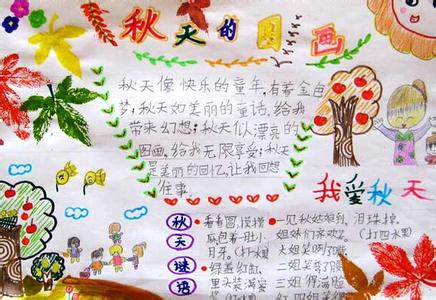 秋天的图画
秋天像快乐的童年,有着金色
梦;秋天如美丽的童话,给我
带来幻想;秋天似漂亮的
图画,给我无限享受;秋天
是美丽的回忆,让我回想
往事
我爱秋天
秋天谜语
看看圆,摸摸
麻包着一肚小
月牙。(打水果)
绿盖红缸,
里头装满
一见秋姑娘到,泪珠掉
姐妹们亲欢笑。(打四水果)
大姐笑
二姐笑
三姐笑得满脸